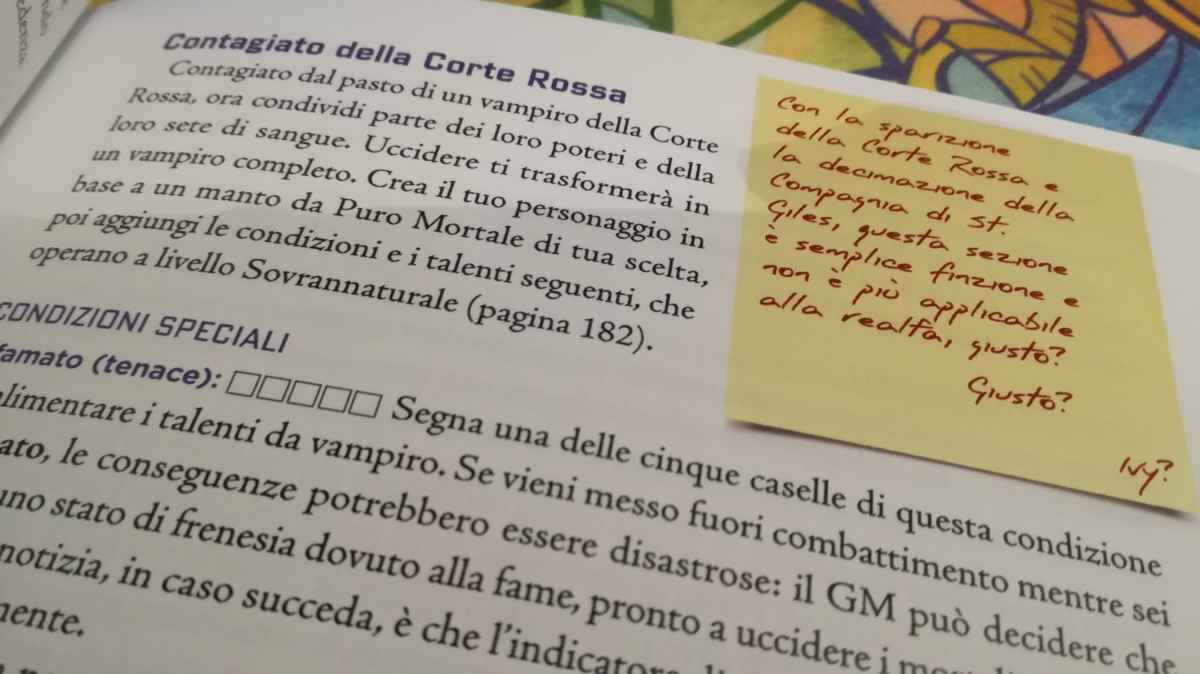 Contagiato della Corte Rossa
Contagiato dal pasto di un vampiro della Corte
Rossa, ora condividi parte dei loro poteri e della
loro sete di sangue. Uccidere ti trasformerà in
un vampiro completo. Crea il tuo personaggio in
base a un manto da Puro Mortale di tua scelta,
poi aggiungi le condizioni e i talenti seguenti, che
operano a livello Sovrannaturale (pagina 182).
CONDIZIONI SPECIALI
famato (tenace): □□□□□ Segna una delle cinque caselle di questa condizione
alimentare i talenti da vampiro. Se vieni messo fuori combattimento mentre sei
ato, le conseguenze potrebbero essere disastrose: il GM può decidere che
uno stato di frenesia dovuto alla fame, pronto a uccidere i
notizia, in caso succeda, è che l'indicatore
mente.
Con la sparizione
della Corte Rossa e
la decimazione della
Compagnia di St.
Giles, questa sezione
è semplice finzione e
non è più applicabile
alla realtà, giusto?
Giusto?
Ivy?